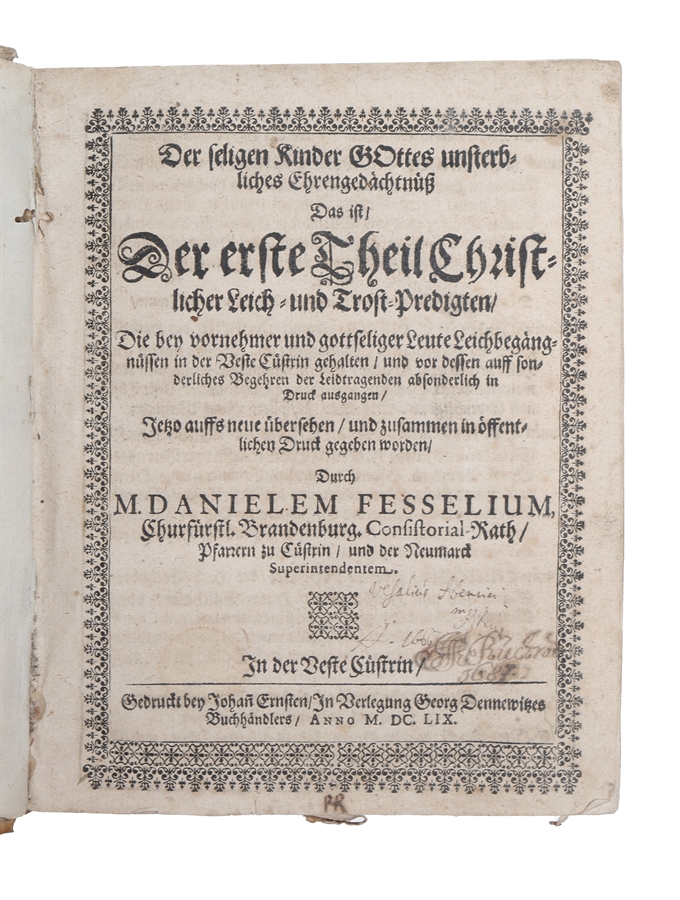 Der seligen Kinder GOttes unsterb-
liches Ehrengedächtnüß
Das ist/
Der erste Theil Christ-
licher Leich-und Trost-Predigten/
Die bey vornehmer und gottseliger Leute Leichbegäng-
nüssen in der Veste Cüstrin gehalten/ und vor dessen auff son-
derliches Begehren der Leidtragenden absonderlich in
Druck ausgangen/
Jetzo auffs neue übersehen/ und zusammen in öffent-
lichen Druck gegeben worden/
Durch
M. DANIELEM FESSELIUM,
Churfürstl. Brandenburg. Consistorial-Rath/
Pfarrern zu Cüstrin/ und der Neumarck
Superintendentem.
In der Veste Cüstrin/
1687
Gedruckt bey Johañ Ernsten/ In Verlegung Georg Dennewitzes
Buchhändlers/ ANNO M. DC. LIX.
PR